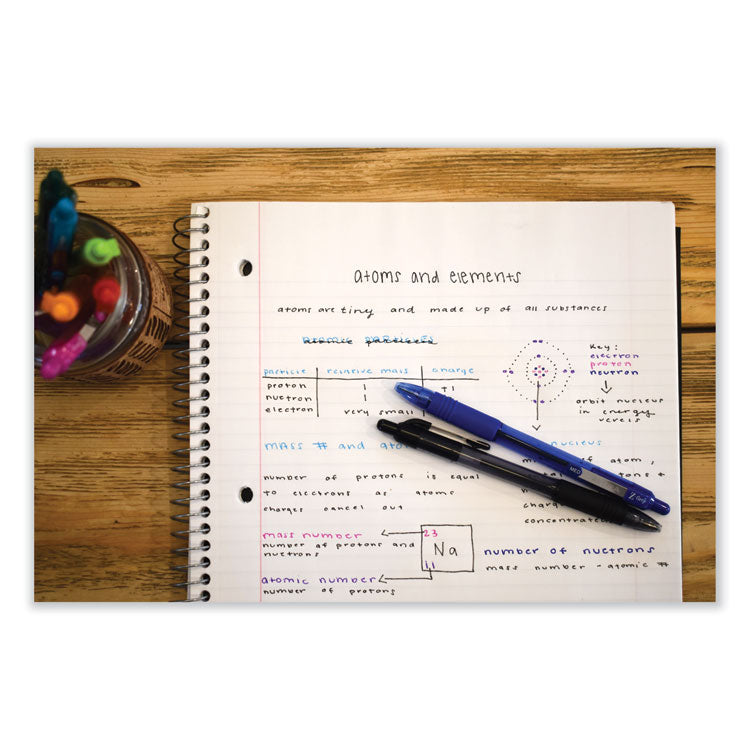 atoms and elements
atoms are tiny and made up of all substances
atomic particles
particle relative mass charge
proton 1 +1
nuetron 1
electron very small
Key:
electron
proton
neutron
orbit nucleus
in energy
MASS # and
nucleus
of atom,
number of protons is equal
to electrons as atoms
charges cancel out
mass number
number of protons and
nuetrons
23
Na
11
atomic number
number of protons
number of nuetrons
mass number - atomic #
MED